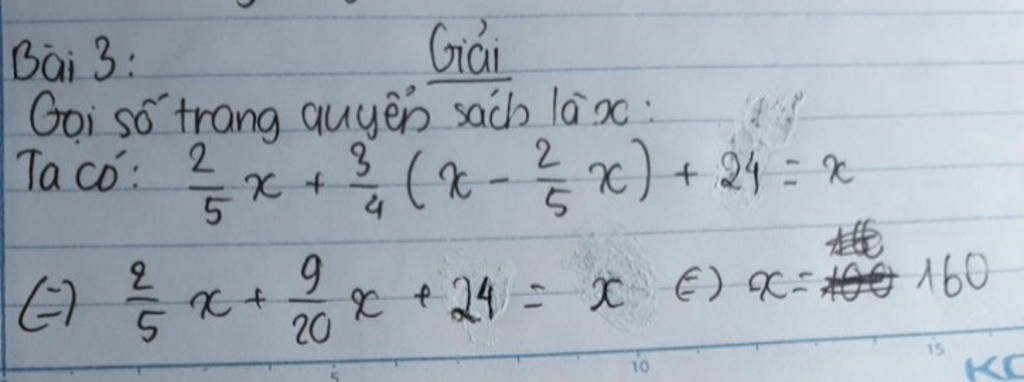 Bài 3: Giải
Gọi số trang quyển sách là x:
Ta có: 2/5 x + 3/4 (x - 2/5 x) + 24 = x
(=) 2/5 x + 9/20 x + 24 = x (=) x = 160
5 10 15
KO